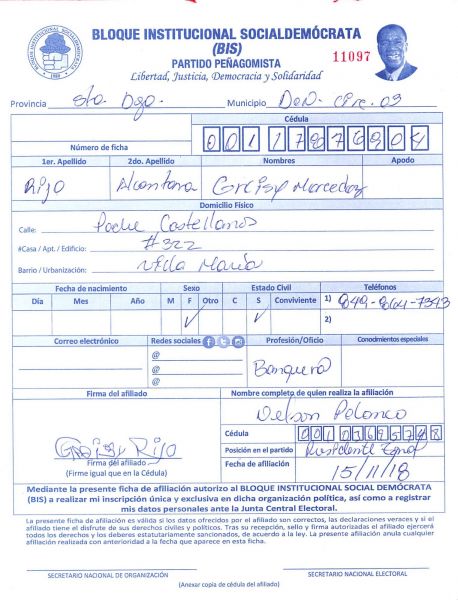 BLOQUE INSTITUCIONAL SOCIALDEMÓCRATA
(BIS)
PARTIDO PEÑAGOMISTA
Libertad, Justicia, Democracia y Solidaridad
11097
Provincia Sto. Dgo. Municipio D.N. Circ. 03
Cédula
Número de ficha
1er. Apellido 2do. Apellido Nombres Apodo
Rijo Alcantara Greisy Mercedes
Domicilio Físico
Calle: Padre Castellanos
#Casa / Apt. / Edificio: #322
Barrio / Urbanización: Villa María
Fecha de nacimiento Sexo Estado Civil Teléfonos
Día Mes Año M F Otro C S Conviviente 1) 849-864-7343
2)
Correo electrónico Redes sociales Profesión/Oficio Conocimientos especiales
@
@
@
Banquera
Firma del afiliado Nombre completo de quien realiza la afiliación
Nelson Polanco
Cédula
Greisy Rijo
Posición en el partido Presidente Zonal
Firma del afiliado
(Firme igual que en la Cédula)
Fecha de afiliación 15/11/18
Mediante la presente ficha de afiliación autorizo al BLOQUE INSTITUCIONAL SOCIAL DEMÓCRATA
(BIS) a realizar mi inscripción única y exclusiva en dicha organización política, así como a registrar
mis datos personales ante la Junta Central Electoral.
La presente ficha de afiliación es válida si los datos ofrecidos por el afiliado son correctos, las declaraciones veraces y si el
afiliado tiene el disfrute de sus derechos civiles y políticos. Tras su recepción, sello y firma autorizadas el afiliado ejercerá
todos los derechos y los deberes estatutariamente sancionados, de acuerdo a la ley. La presente afiliación anula cualquier
afiliación realizada con anterioridad a la fecha que aparece en esta ficha.
SECRETARIO NACIONAL DE ORGANIZACIÓN SECRETARIO NACIONAL ELECTORAL
(Anexar copia de cédula del afiliado)